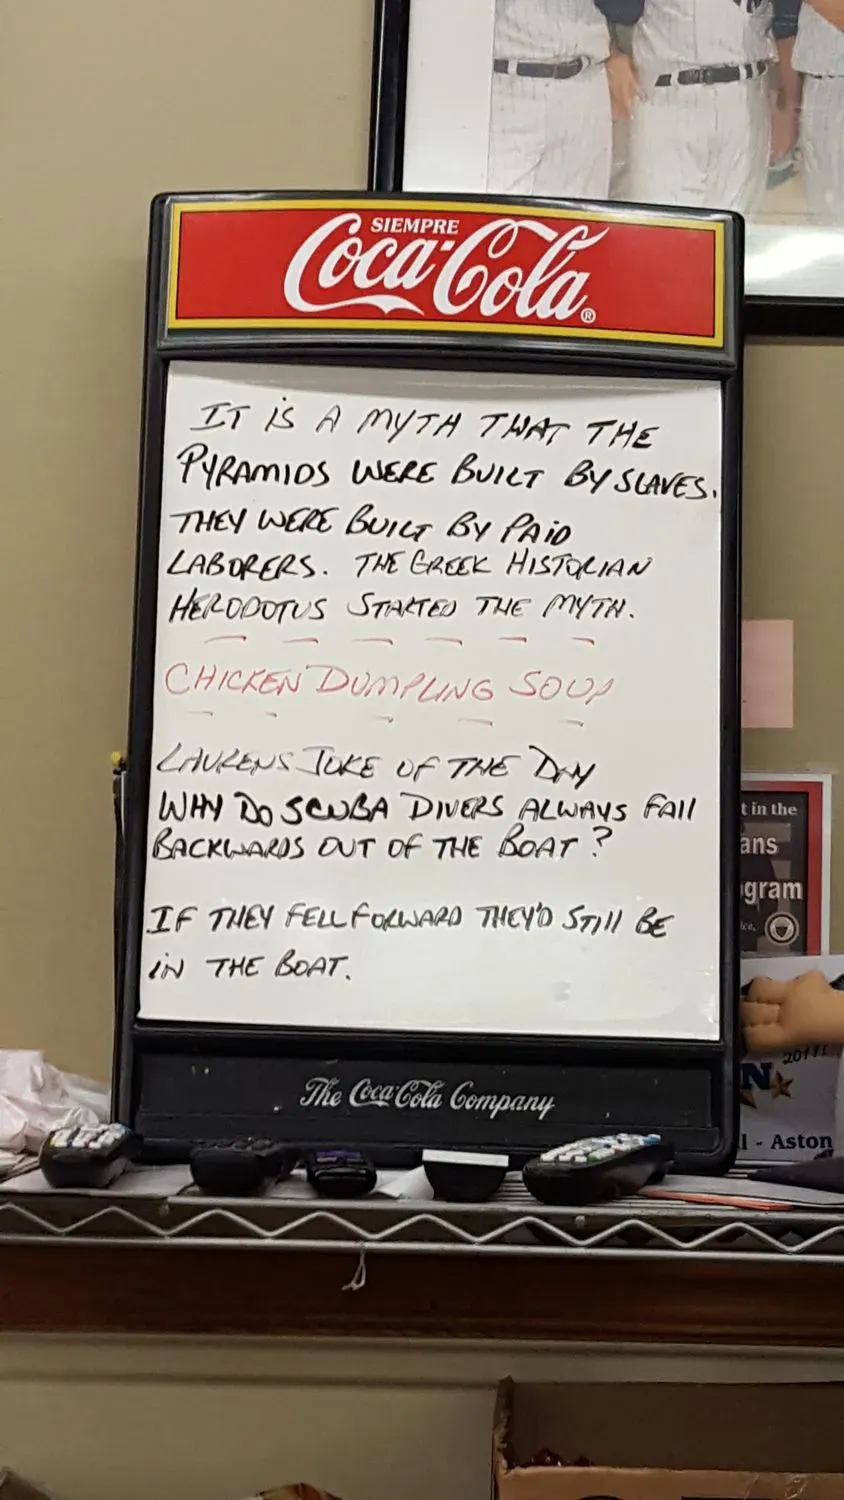 SIEMPRE
Coca-Cola®
IT IS A MYTH THAT THE
PYRAMIDS WERE BUILT BY SLAVES.
THEY WERE BUILT BY PAID
LABORERS. THE GREEK HISTORIAN
HERODOTUS STARTED THE MYTH.
CHICKEN DUMPLING SOUP
LAURENS JOKE OF THE DAY
WHY DO SCUBA DIVERS ALWAYS FAll
BACKWARDS OUT OF THE BOAT?
IF THEY FELL FORWARD THEY'D STill BE
iN THE BOAT.
The Coca-Cola Company
t in the
ans
gram
N
l - Aston